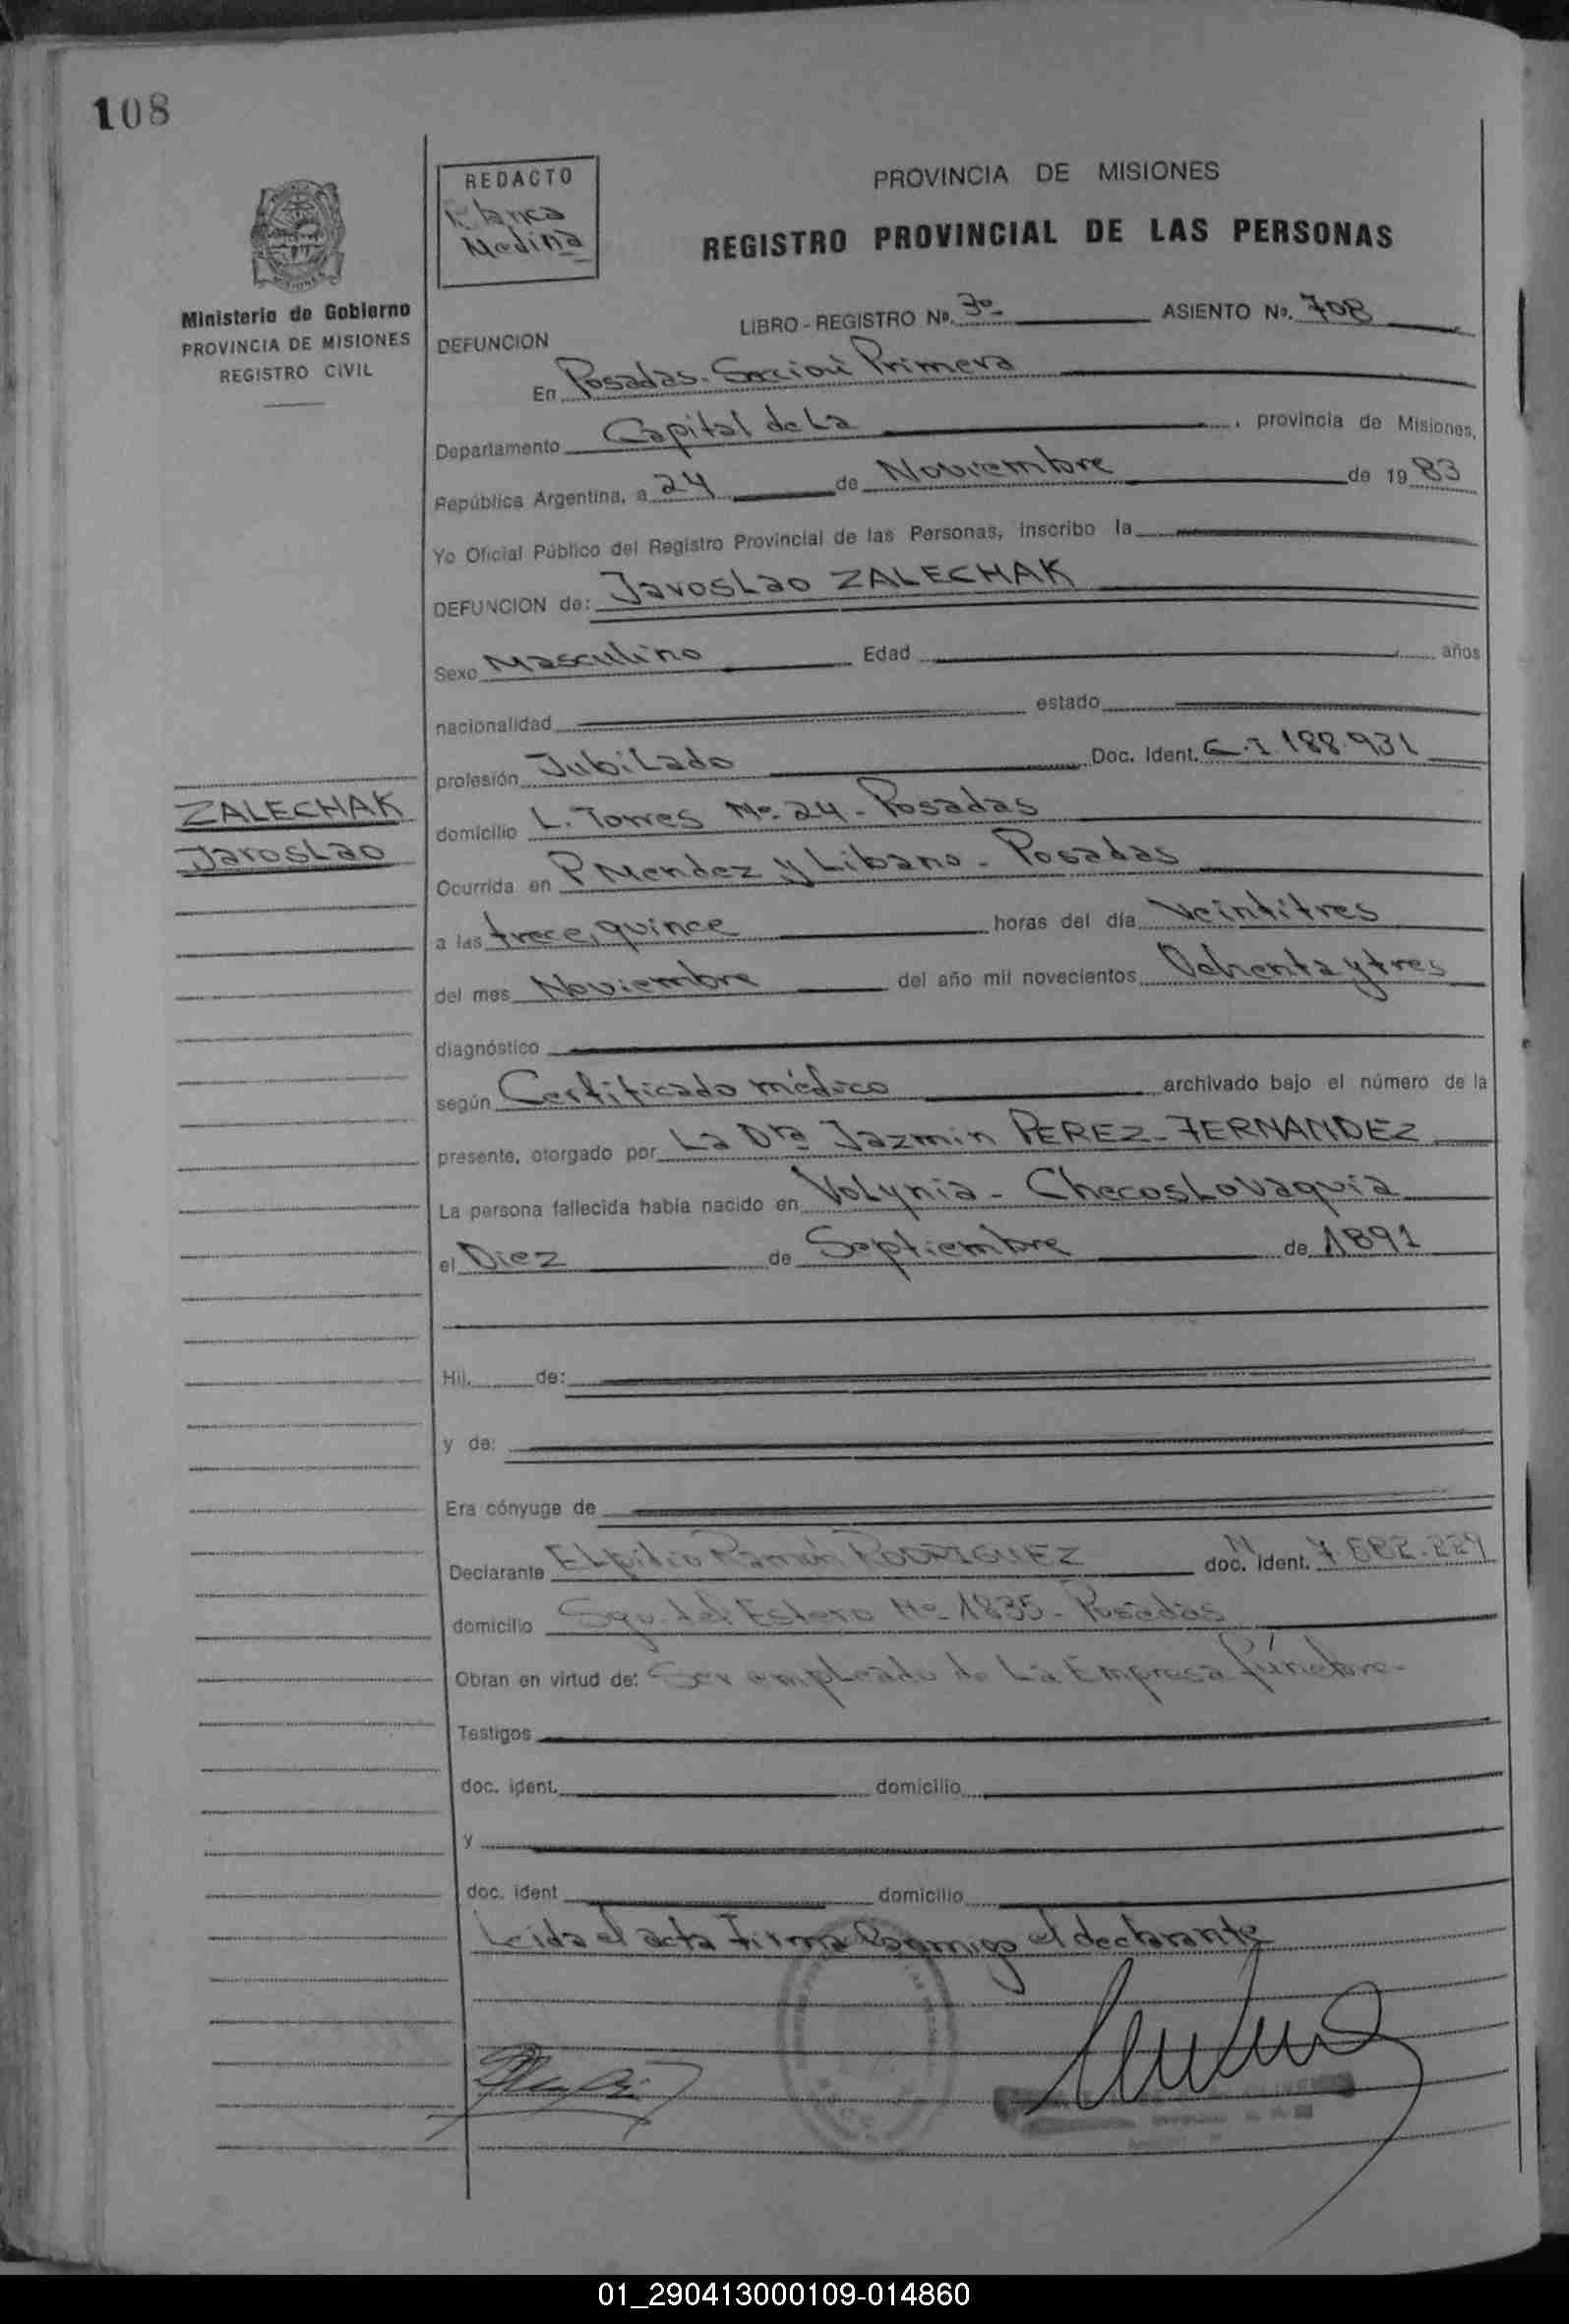 108
REDACTO
Blanca
Medina
PROVINCIA DE MISIONES
REGISTRO PROVINCIAL DE LAS PERSONAS
Ministerio de Gobierno
PROVINCIA DE MISIONES
REGISTRO CIVIL
LIBRO - REGISTRO Nº. 3º ASIENTO Nº. 708
DEFUNCION
En Posadas. Sección Primera
Departamento Capital de La , provincia de Misiones,
República Argentina, a 24 de Noviembre de 1983
Yo Oficial Público del Registro Provincial de las Personas, inscribo la
DEFUNCION de: JarosLao ZALECHAK
Sexo Masculino Edad años
nacionalidad estado
profesión JubiLado Doc. Ident. C.I. 188.931
ZALECHAK
JarosLao
domicilio L. Torres Nº 24 - Posadas
Ocurrida en P Mendez y Libano - Posadas
a las trece, quince horas del día Veintitres
del mes Noviembre del año mil novecientos Ochenta y tres
diagnóstico
según Certificado médico archivado bajo el número de la
presente, otorgado por La Dra Jazmin PEREZ - FERNANDEZ
La persona fallecida había nacido en VoLynia - ChecosLovaquia
el Diez de Septiembre de 1891
Hij. de:
y de:
Era cónyuge de
Declarante ELpidio Ramón RODRIGUEZ doc. ident. 7.882.229
domicilio Sgo. del Estero Nº 1835 - Posadas
Obran en virtud de: Ser empLeado de La Empresa fúnebre -
Testigos
doc. ident. domicilio
y
doc. ident domicilio
Leida el acta Firma Conmigo el decLarante
01_290413000109-014860